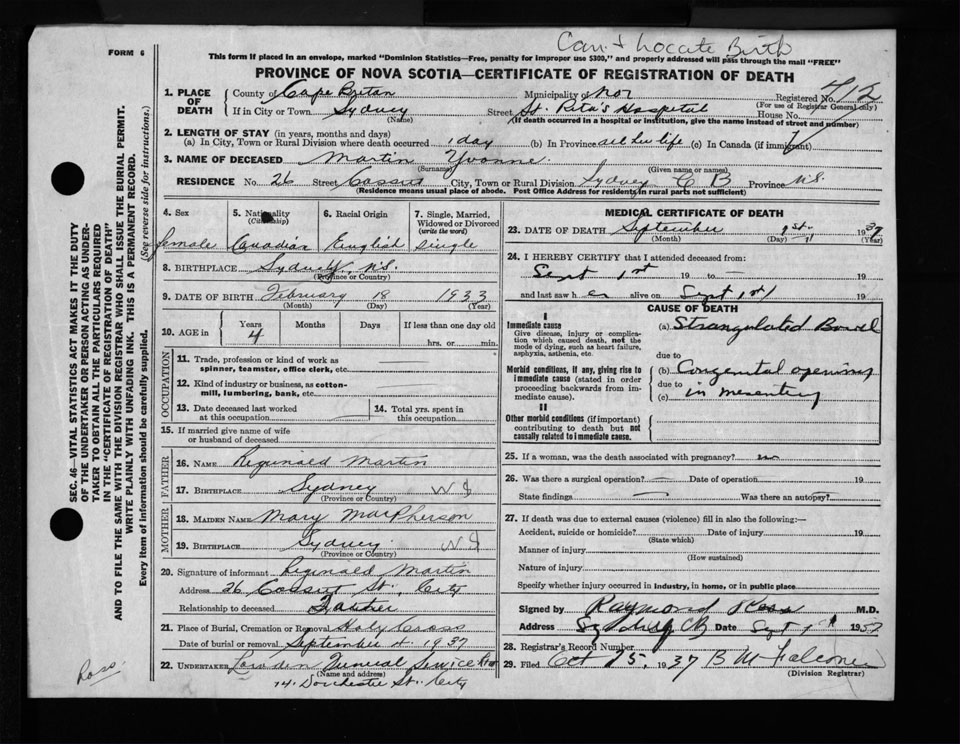 Can't Locate Birth
FORM 6
This form if placed in an envelope, marked "Dominion Statistics—Free, penalty for improper use $300," and properly addressed will pass through the mail "FREE"
PROVINCE OF NOVA SCOTIA—CERTIFICATE OF REGISTRATION OF DEATH
SEC. 46—VITAL STATISTICS ACT MAKES IT THE DUTY
OF THE UNDERTAKER OR PERSON ACTING AS UNDER-
TAKER TO OBTAIN ALL THE PARTICULARS REQUIRED
IN THE "CERTIFICATE OF REGISTRATION OF DEATH"
AND TO FILE THE SAME WITH THE DIVISION REGISTRAR WHO SHALL ISSUE THE BURIAL PERMIT.
WRITE PLAINLY WITH UNFADING INK. THIS IS A PERMANENT RECORD.
Every item of information should be carefully supplied. (See reverse side for instructions.)
1. PLACE OF DEATH County of Cape Breton Municipality of Registered No. 412
(For use of Registrar General only)
If in City or Town Sydney Street St. Rita's Hospital House No.
(Name) (If death occurred in a hospital or institution, give the name instead of street and number)
2. LENGTH OF STAY (in years, months and days)
(a) In City, Town or Rural Division where death occurred 1 day (b) In Province all her life (c) In Canada (if immigrant)
3. NAME OF DECEASED Martin Yvonne
(Surname) (Given name or names)
RESIDENCE No. 26 Street City, Town or Rural Division Sydney C B Province N.S.
(Residence means usual place of abode. Post Office Address for residents in rural parts not sufficient)
4. Sex 5. Nationality (Citizenship) 6. Racial Origin 7. Single, Married, Widowed or Divorced (write the word)
female Canadian English single
8. BIRTHPLACE Sydney, N.S.
(Province or Country)
9. DATE OF BIRTH February 18 1933
(Month) (Day) (Year)
10. AGE in Years Months Days If less than one day
4 hrs. or min.
OCCUPATION
11. Trade, profession or kind of work as
spinner, teamster, office clerk, etc.
12. Kind of industry or business, as cotton-
mill, lumbering, bank, etc.
13. Date deceased last worked at this occupation 14. Total yrs. spent in this occupation
15. If married give name of wife
or husband of deceased
FATHER
16. NAME Reginald Martin
17. BIRTHPLACE Sydney
(Province or Country)
MOTHER
18. MAIDEN NAME Mary MacPherson
19. BIRTHPLACE Sydney
(Province or Country)
20. Signature of informant Reginald Martin
Address 26 St., City
Relationship to deceased Father
21. Place of Burial, Cremation or Removal Holy Cross
Date of burial or removal September 4. 1937
22. UNDERTAKER Funeral Service
(Name and Address)
74 Dorchester St. City
MEDICAL CERTIFICATE OF DEATH
23. DATE OF DEATH September 1st 1937
(Month) (Day) (Year)
24. I HEREBY CERTIFY that I attended deceased from:
Sept 1st 19 to 19
and last saw her alive on Sept 1st 19
CAUSE OF DEATH
I
Immediate cause
Give disease, injury or complica-
tion which caused death, not the
mode of dying, such as heart failure,
asphyxia, asthenia, etc.
(a) Strangulated Bowel
due to
Morbid conditions, if any, giving rise to
immediate cause (stated in order
proceeding backwards from im-
mediate cause).
(b) Congenital opening
due to
(c) in mesentery
II
Other morbid conditions (if important)
contributing to death but not
causally related to immediate cause.
25. If a woman, was the death associated with pregnancy? no
26. Was there a surgical operation? — Date of operation 19
State findings Was there an autopsy?
27. If death was due to external causes (violence) fill in also the following:—
Accident, suicide or homicide? Date of injury 19
(State which)
Manner of injury
(How sustained)
Nature of injury
Specify whether injury occurred in industry, in home, or in public place
Signed by Raymond Ross M.D.
Address Sydney CB Date Sept 1st 1937
28. Registrar's Record Number
29. Filed Oct 25. 1937 B M Falconer
(Division Registrar)